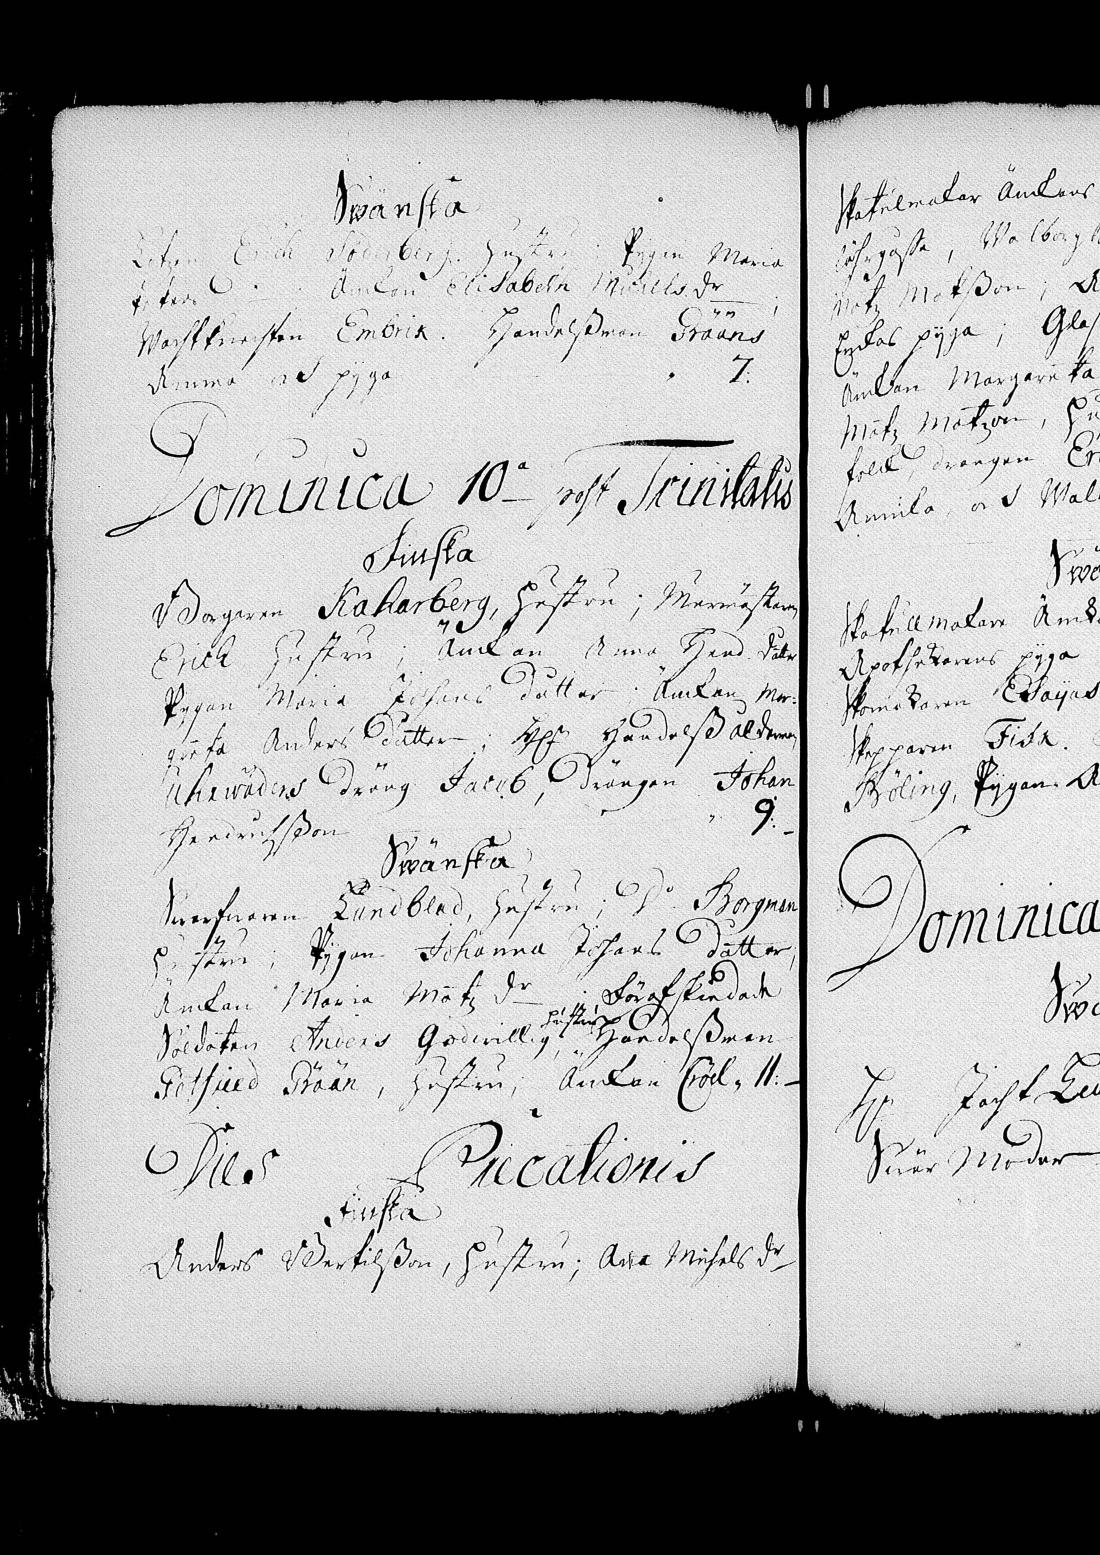 Swänska
Erich Söderberg. hustru; Pygan Maria
Änkan Elisabeth Michells dr
Wachtknechten Embrik. Handelssman Brååns
Amma och pyga 7:
Dominica 10a post Trinitatis
Finska
Borgaren Kaharberg, hustru; Murmästaren
Erich hustru; Änkan Anna Hend. dotter
Pygan Maria Johans dotter; Änkan Mar-
greta Anders dotter; Handelss ålderman
Uhrwäders dräng Jacob, Drängen Johan
Hendrichsson 9:
Swänska
Swarfwaren Lundblad, hustru; Do Borgman
hustru; Pygan Johanna Johans dotter,
Änkan Maria Matz dr; Förafskiedade
Soldaten Anders Godwillig, hustru, Handelssman
Gotfried Bröön, hustru; Änkan Cröel, 11:
Dies Precationis
Finska
Anders Bertilsson, hustru; Ana Michels dr
Skatulmakar Änkans
Walborg
Matz Matsson;
Enckas pyga; Glas
Änkan Margareta
Matz Matzon, hu
folck, drängen Er
Annika, och Wal
Swä
Skatullmakare Änk
Apothekarens pyga
Skomakaren Esayas
Skepparen Fisk.
Böling, Pygan A
Dominica
Swä
Jacht Leu
Swär Moder